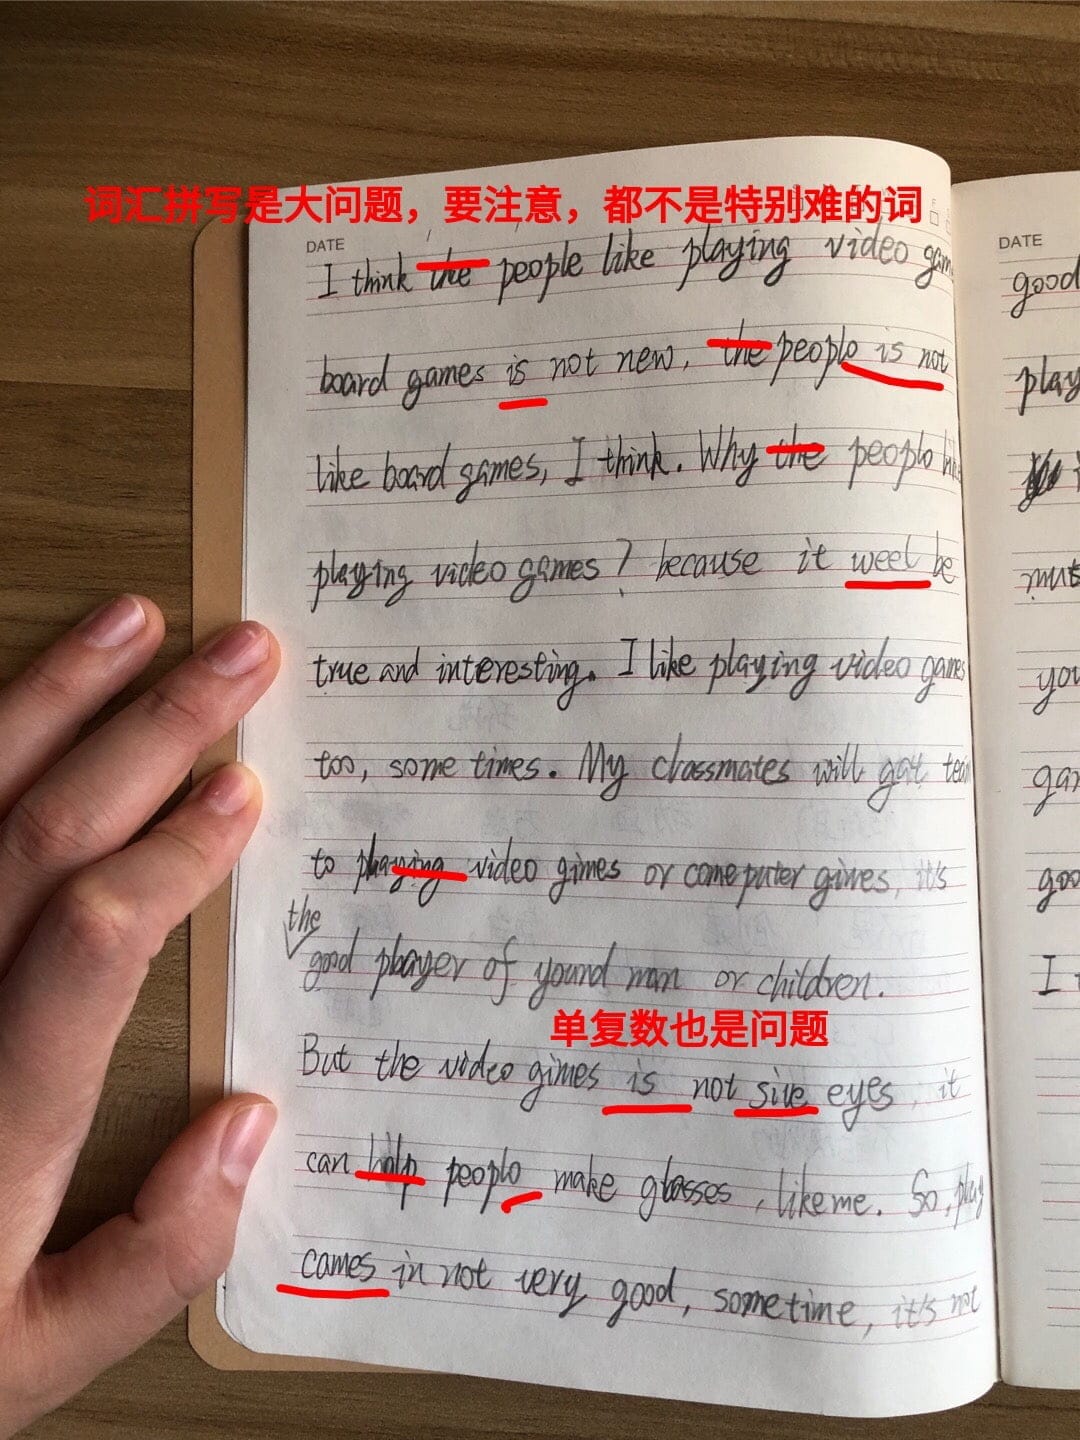 词汇拼写是大问题，要注意，都不是特别难的词
DATE
I think the people like playing video gam
board games is not new, the peoplo is not
like board games, I think. Why the peoplo
playing video games? because it weel be
true and interesting. I like playing video games
too, some times. My classmates will gat tea
to playing video gimes or come puter gimes, it's
the
good player of yound man or children.
单复数也是问题
But the video gimes is not sive eyes, it
can holp peoplo make glasses, like me. So, play
cames in not very good, sometime, it's not
DATE
good
play
mus
you
gar
goo
I